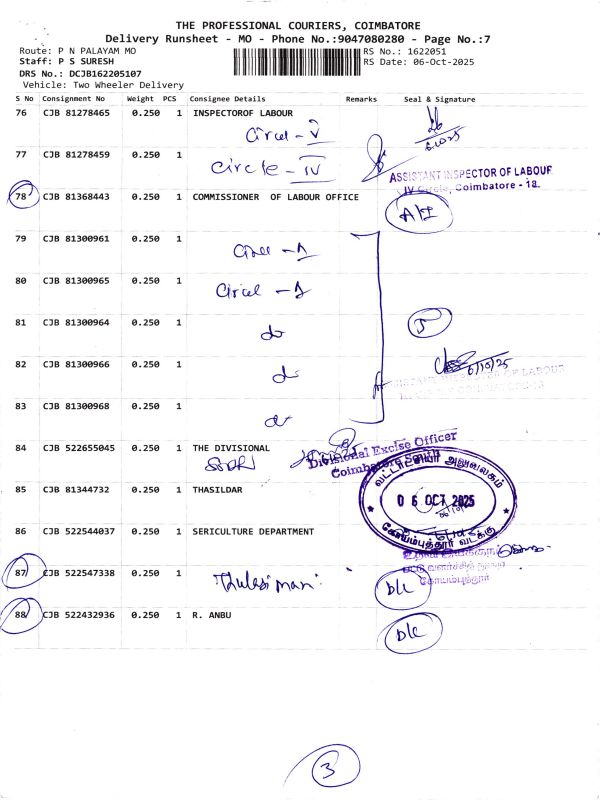 THE PROFESSIONAL COURIERS, COIMBATORE
Delivery Runsheet - MO - Phone No.:9047080280 - Page No.:7
Route: P N PALAYAM MO
RS No.: 1622051
Staff: P S SURESH
RS Date: 06-Oct-2025
DRS No.: DCJB162205107
Vehicle: Two Wheeler Delivery
S No Consignment No Weight PCS Consignee Details Remarks Seal & Signature
76 CJB 81278465 0.250 1 INSPECTOROF LABOUR
Circel - V
77 CJB 81278459 0.250 1
Circle - IV
ASSISTANT INSPECTOR OF LABOUR
IV Circle, Coimbatore - 18.
78 CJB 81368443 0.250 1 COMMISSIONER OF LABOUR OFFICE
79 CJB 81300961 0.250 1
80 CJB 81300965 0.250 1
81 CJB 81300964 0.250 1
do
5
82 CJB 81300966 0.250 1
do
6/10/25
83 CJB 81300968 0.250 1
do
84 CJB 522655045 0.250 1 THE DIVISIONAL
Divisional Excise Officer
Coimbatore South
85 CJB 81344732 0.250 1 THASILDAR
வட்டாட்சியர் அலுவலகம்
06 OCT 2025
கோயம்புத்தூர் வடக்கு
86 CJB 522544037 0.250 1 SERICULTURE DEPARTMENT
கோயம்புத்தூர்
87 CJB 522547338 0.250 1
Thulasi mani
D/C
88 CJB 522432936 0.250 1 R. ANBU
D/C
3